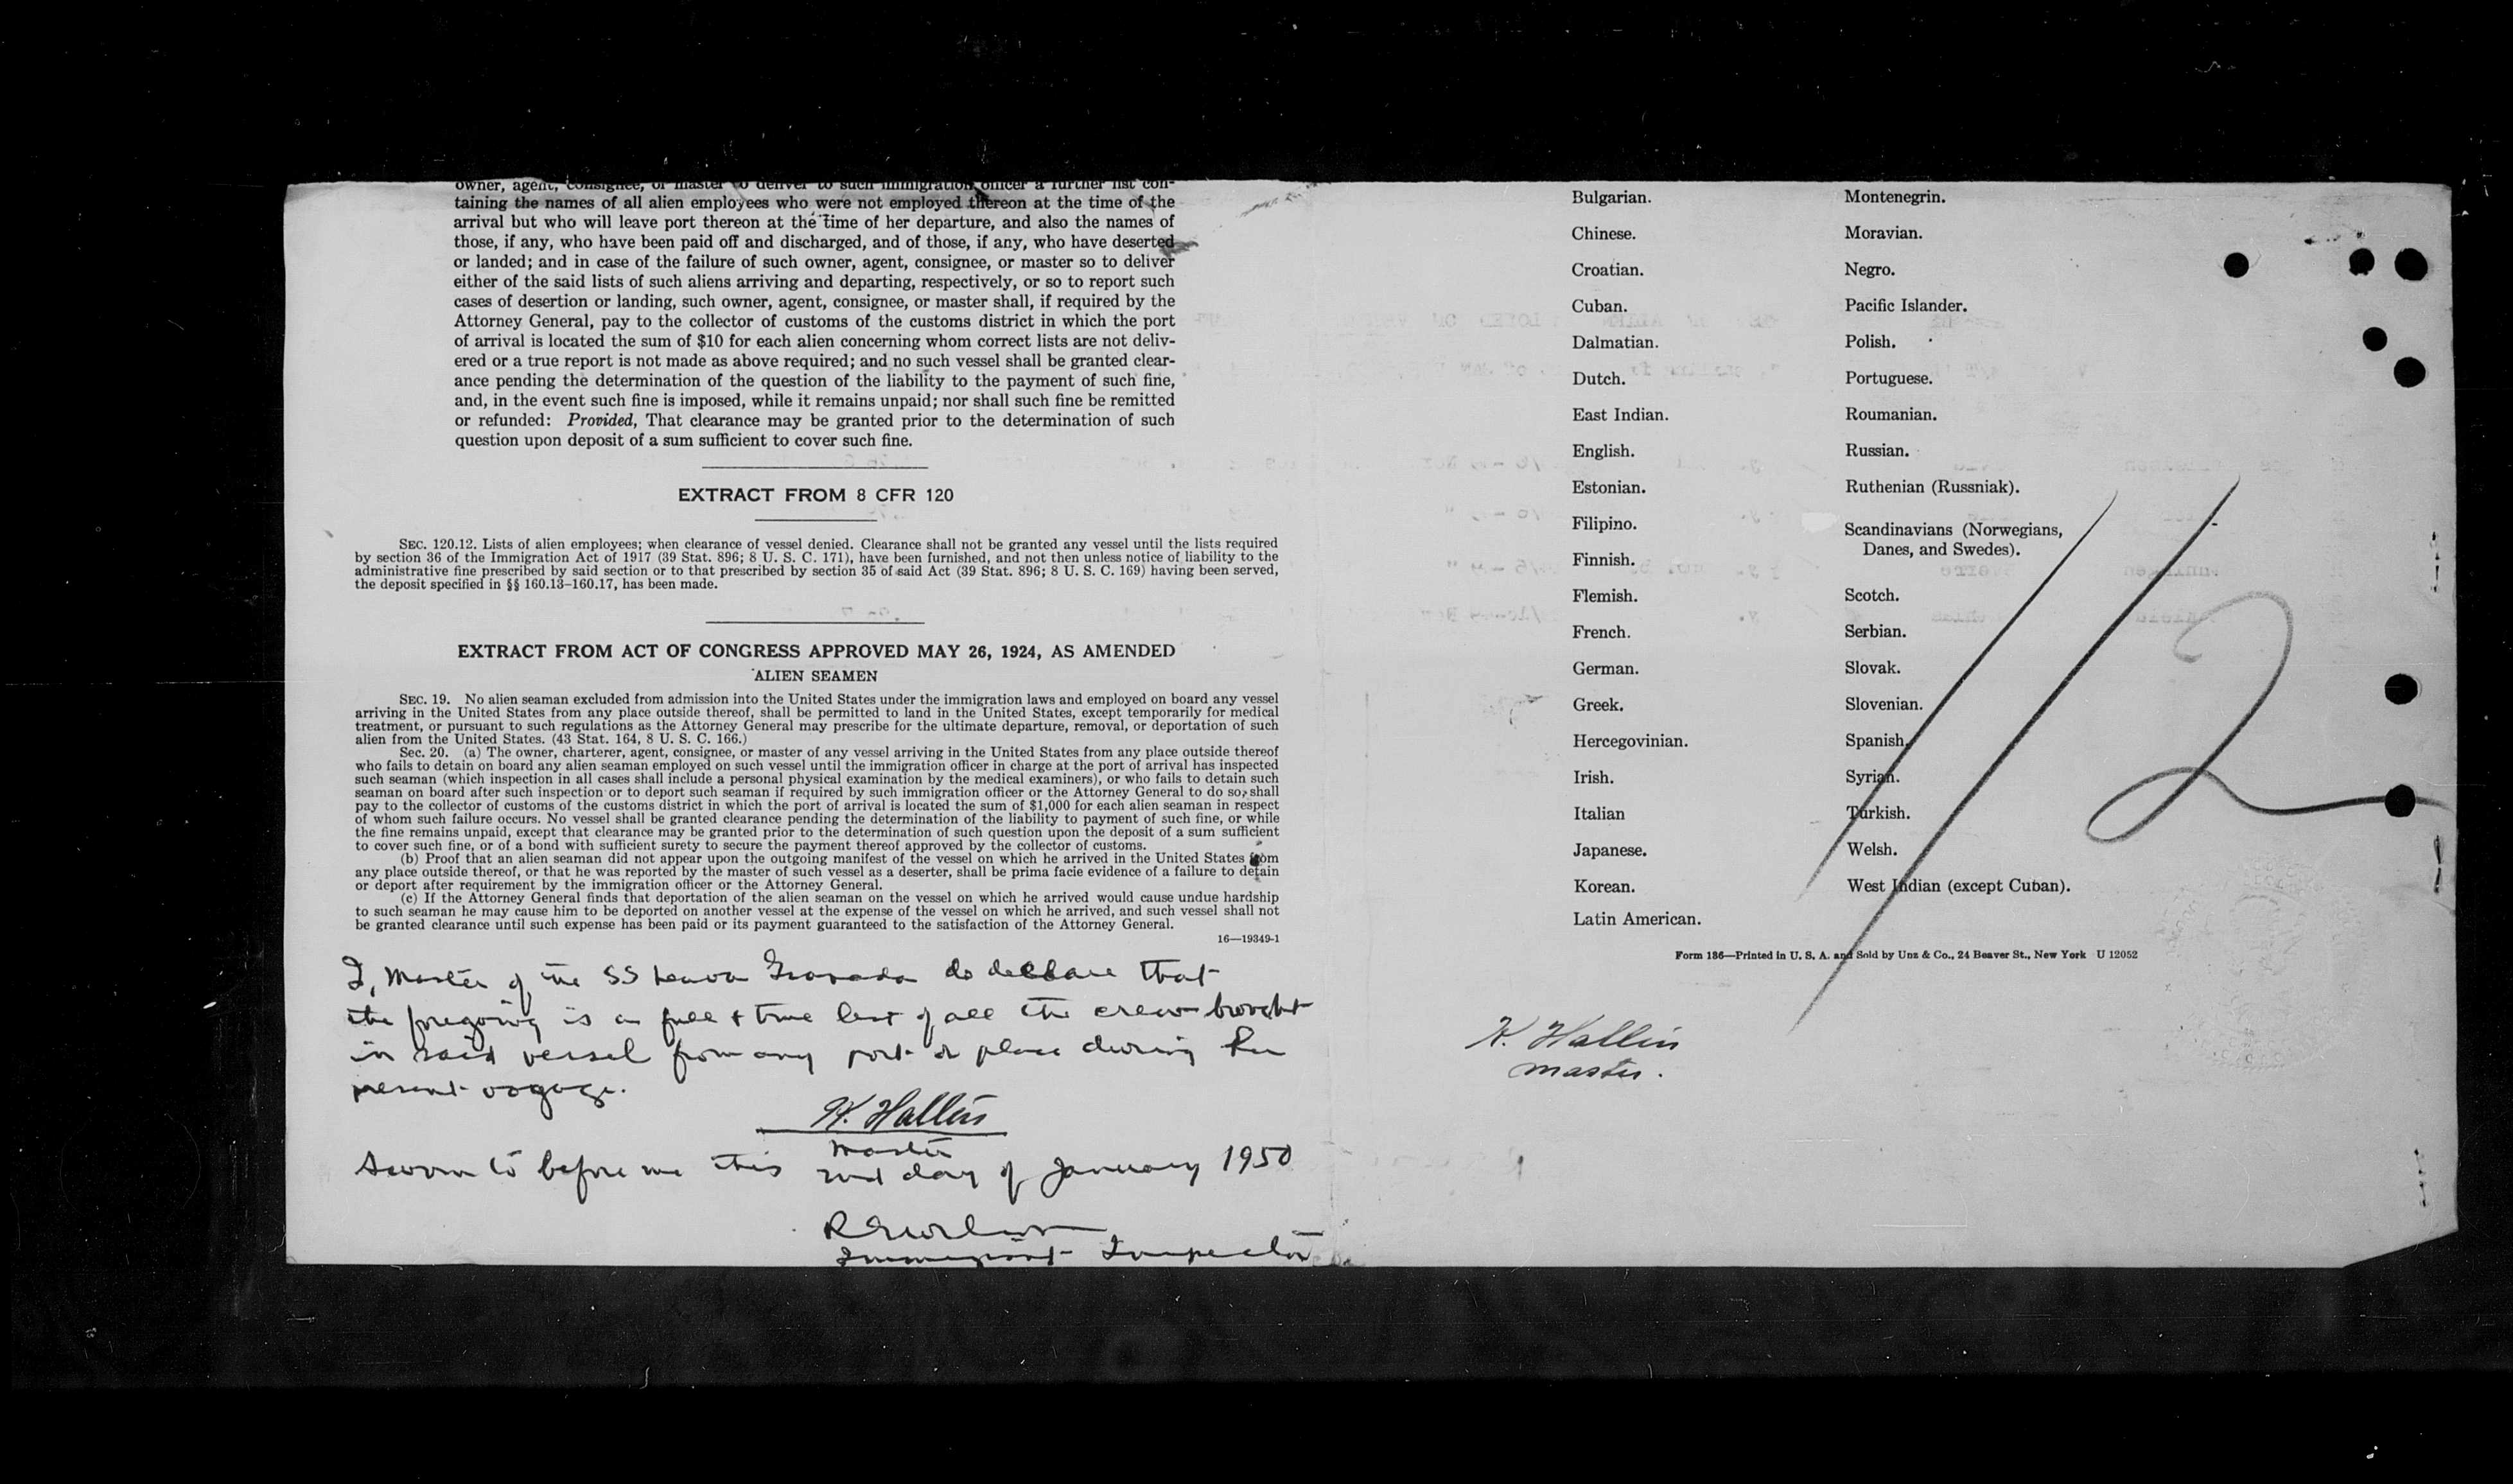 owner, agent, consignee, or master to deliver to such immigration officer a further list con-
taining the names of all alien employees who were not employed thereon at the time of the
arrival but who will leave port thereon at the time of her departure, and also the names of
those, if any, who have been paid off and discharged, and of those, if any, who have deserted
or landed; and in case of the failure of such owner, agent, consignee, or master so to deliver
either of the said lists of such aliens arriving and departing, respectively, or so to report such
cases of desertion or landing, such owner, agent, consignee, or master shall, if required by the
Attorney General, pay to the collector of customs of the customs district in which the port
of arrival is located the sum of $10 for each alien concerning whom correct lists are not deliv-
ered or a true report is not made as above required; and no such vessel shall be granted clear-
ance pending the determination of the question of the liability to the payment of such fine,
and, in the event such fine is imposed, while it remains unpaid; nor shall such fine be remitted
or refunded: Provided, That clearance may be granted prior to the determination of such
question upon deposit of a sum sufficient to cover such fine.
EXTRACT FROM 8 CFR 120
SEC. 120.12. Lists of alien employees; when clearance of vessel denied. Clearance shall not be granted any vessel until the lists required
by section 36 of the Immigration Act of 1917 (39 Stat. 896; 8 U. S. C. 171), have been furnished, and not then unless notice of liability to the
administrative fine prescribed by said section or to that prescribed by section 35 of said Act (39 Stat. 896; 8 U. S. C. 169) having been served,
the deposit specified in §§ 160.13–160.17, has been made.
EXTRACT FROM ACT OF CONGRESS APPROVED MAY 26, 1924, AS AMENDED
ALIEN SEAMEN
SEC. 19. No alien seaman excluded from admission into the United States under the immigration laws and employed on board any vessel
arriving in the United States from any place outside thereof, shall be permitted to land in the United States, except temporarily for medical
treatment, or pursuant to such regulations as the Attorney General may prescribe for the ultimate departure, removal, or deportation of such
alien from the United States. (43 Stat. 164, 8 U. S. C. 166.)
Sec. 20. (a) The owner, charterer, agent, consignee, or master of any vessel arriving in the United States from any place outside thereof
who fails to detain on board any alien seaman employed on such vessel until the immigration officer in charge at the port of arrival has inspected
such seaman (which inspection in all cases shall include a personal physical examination by the medical examiners), or who fails to detain such
seaman on board after such inspection or to deport such seaman if required by such immigration officer or the Attorney General to do so, shall
pay to the collector of customs of the customs district in which the port of arrival is located the sum of $1,000 for each alien seaman in respect
of whom such failure occurs. No vessel shall be granted clearance pending the determination of the liability to payment of such fine, or while
the fine remains unpaid, except that clearance may be granted prior to the determination of such question upon the deposit of a sum sufficient
to cover such fine, or of a bond with sufficient surety to secure the payment thereof approved by the collector of customs.
(b) Proof that an alien seaman did not appear upon the outgoing manifest of the vessel on which he arrived in the United States from
any place outside thereof, or that he was reported by the master of such vessel as a deserter, shall be prima facie evidence of a failure to detain
or deport after requirement by the immigration officer or the Attorney General.
(c) If the Attorney General finds that deportation of the alien seaman on the vessel on which he arrived would cause undue hardship
to such seaman he may cause him to be deported on another vessel at the expense of the vessel on which he arrived, and such vessel shall not
be granted clearance until such expense has been paid or its payment guaranteed to the satisfaction of the Attorney General.
16—19349-1
I, Master of the SS Granada do declare that
the foregoing is a full & true list of all the crew brought
in said vessel from any port or place during her
present voyage.
K. Hallin
Master
Sworn to before me this 2nd day of January 1950
Immigrant Inspector
Bulgarian.
Chinese.
Croatian.
Cuban.
Dalmatian.
Dutch.
East Indian.
English.
Estonian.
Filipino.
Finnish.
Flemish.
French.
German.
Greek.
Hercegovinian.
Irish.
Italian
Japanese.
Korean.
Latin American.
Montenegrin.
Moravian.
Negro.
Pacific Islander.
Polish.
Portuguese.
Roumanian.
Russian.
Ruthenian (Russniak).
Scandinavians (Norwegians,
Danes, and Swedes).
Scotch.
Serbian.
Slovak.
Slovenian.
Spanish.
Syrian.
Turkish.
Welsh.
West Indian (except Cuban).
Form 186—Printed in U. S. A. and Sold by Unz & Co., 24 Beaver St., New York U 12052
1/2
K. Hallin
master.